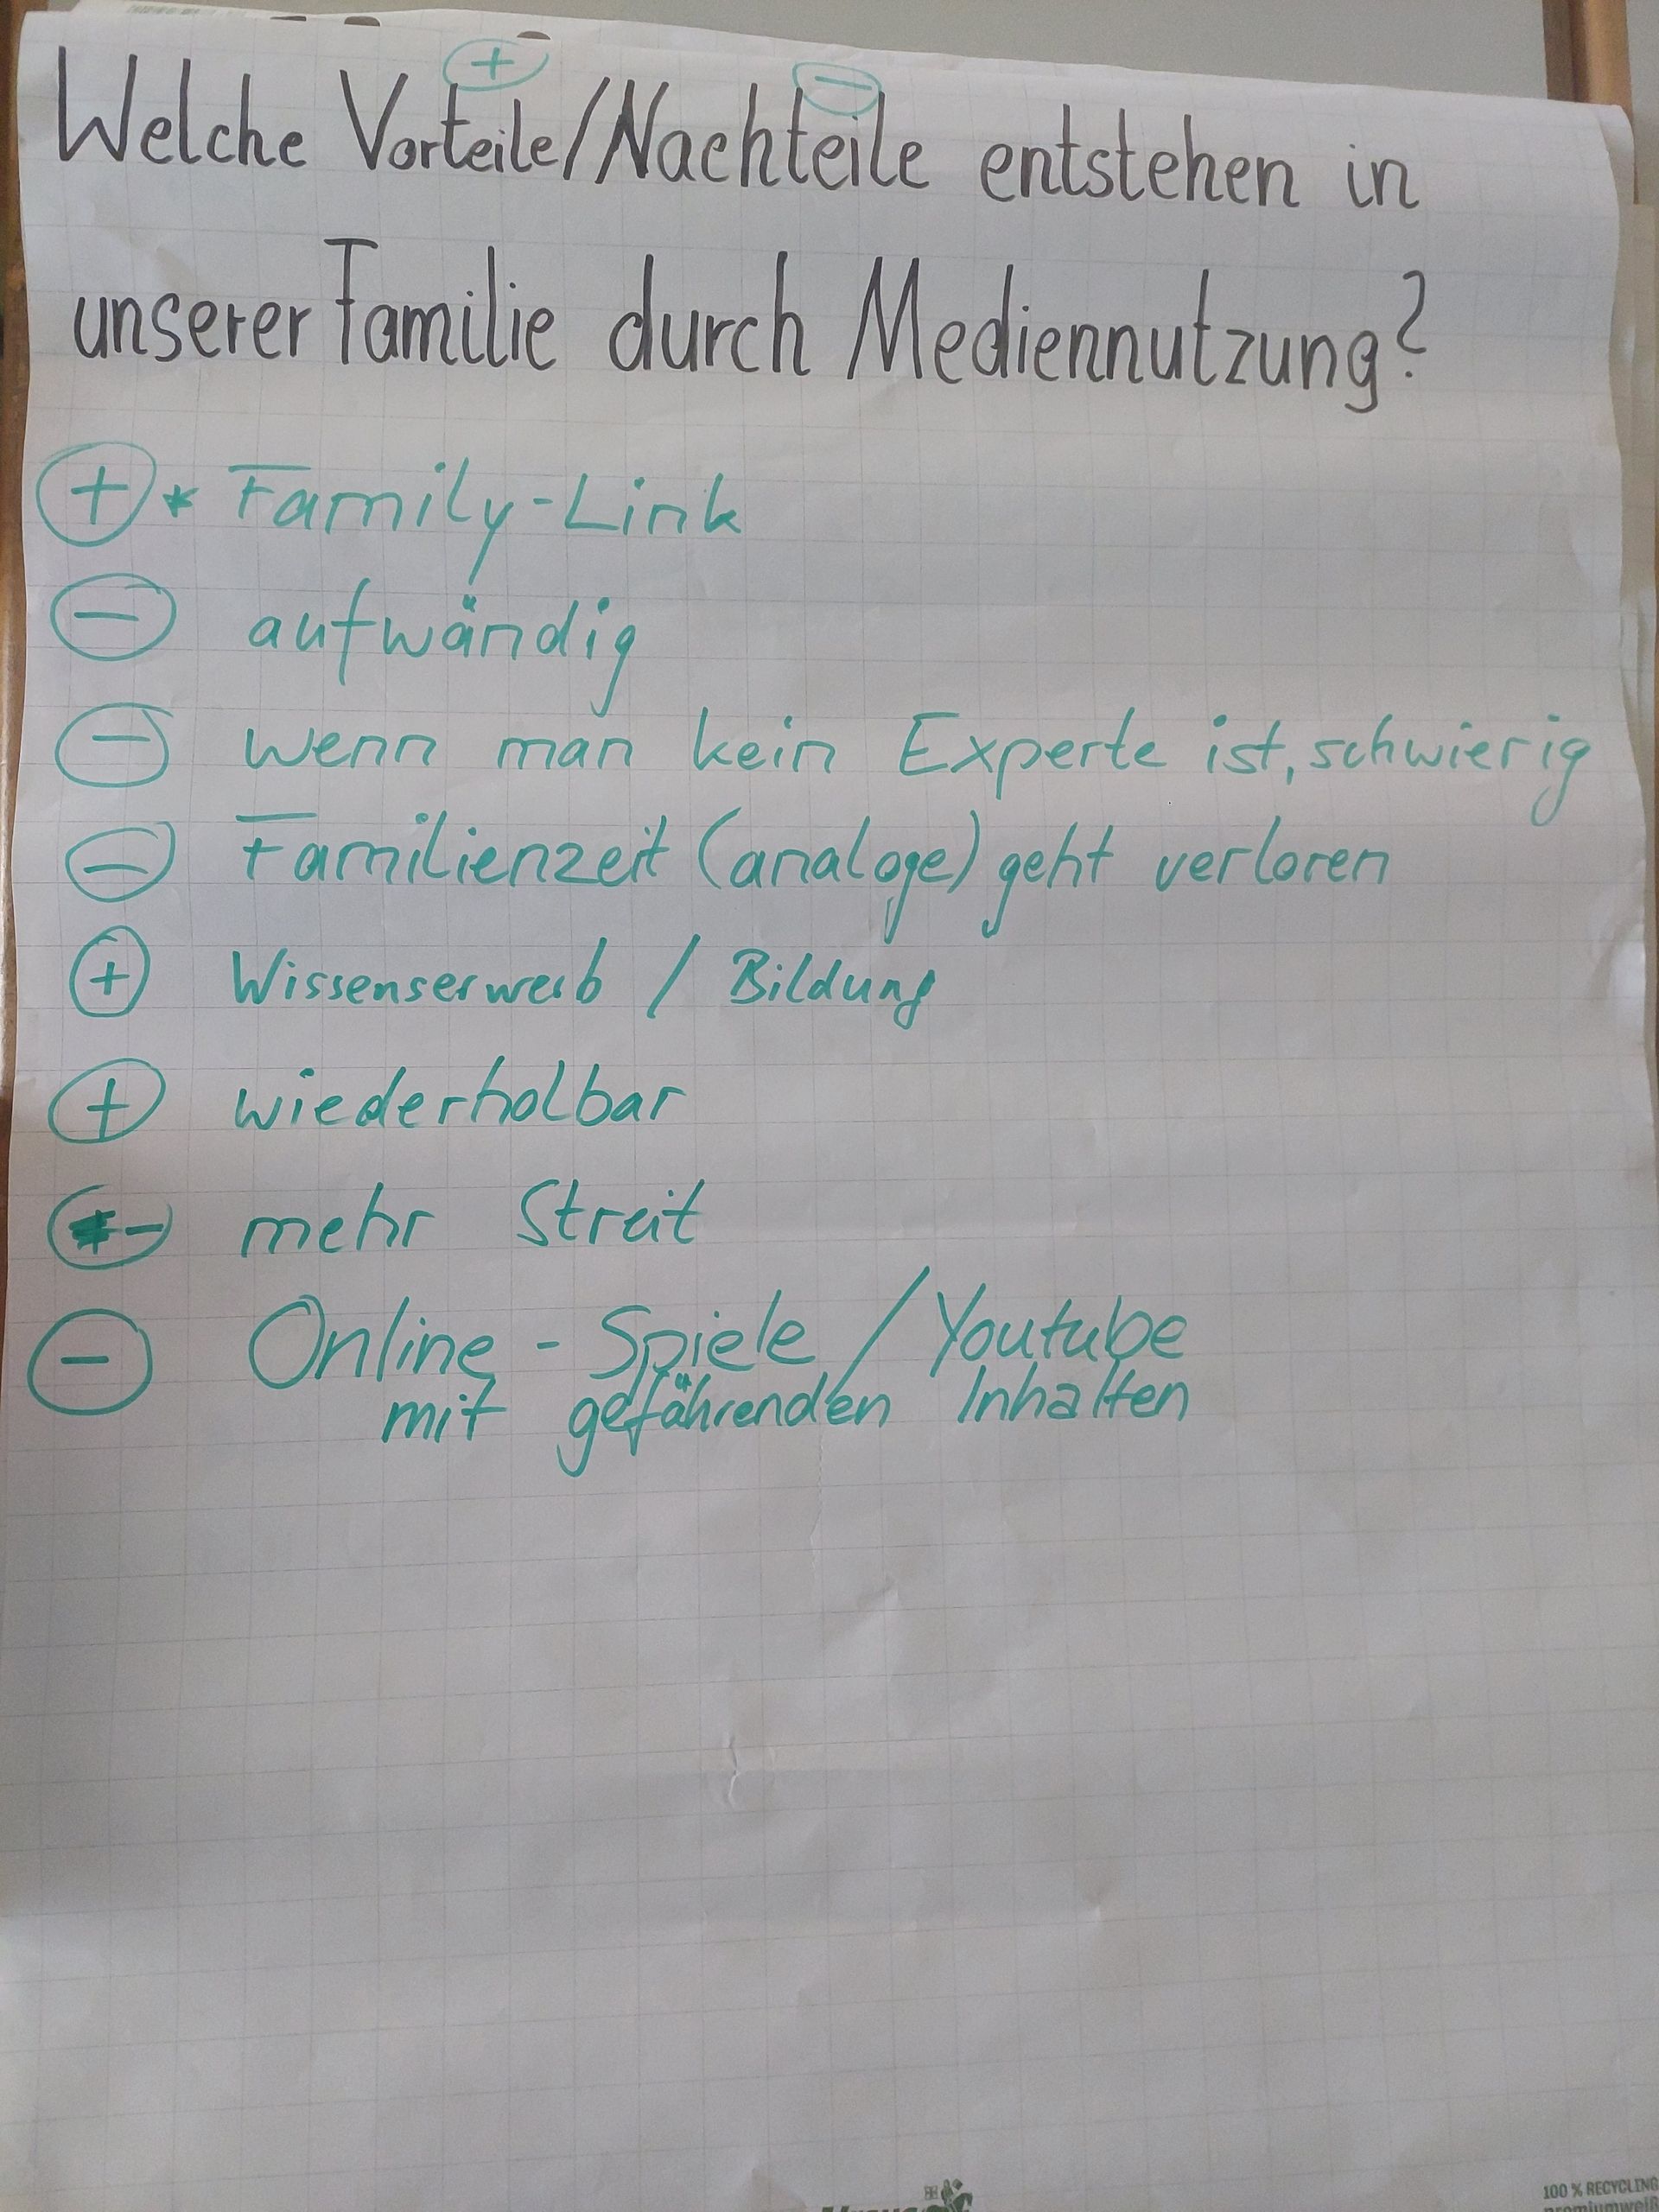 Welche Vorteile/Nachteile entstehen in
+ -
unserer Familie durch Mediennutzung?
+ * Family-Link
- aufwändig
- wenn man kein Experte ist, schwierig
- Familienzeit (analoge) geht verloren
+ Wissenserwerb / Bildung
+ wiederholbar
- mehr Streit
- Online - Spiele / Youtube
mit gefährenden Inhalten
100 % RECYCLING
premiumweiß